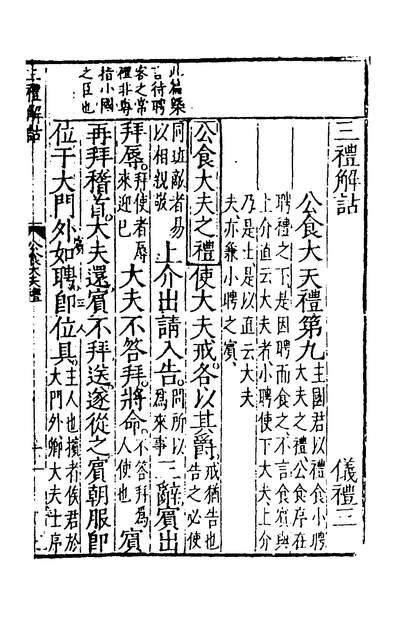 三禮解詁　儀禮三
公食大夫禮第九主國君以禮食小聘
大夫之禮公食序在
聘禮之下是因聘而食之不言食賓與
上介直云大夫者小聘使下大夫上介
乃是士是以直云大夫
夫亦兼小聘之賓
公食大夫之禮使大夫戒各以其爵戒猶告也
告之必使
同近敵者易
以相親敬上介出請入告問所以
為來事三辭賓出
拜辱拜使者辱
來迎巳大夫不答拜將命不答拜為
人使也賓
再拜稽首大夫還賓不拜送遂從之賓朝服即
位于大門外如聘即位具主人也擯者俟君於
大門外卿大夫士序
此篇
言待聘
客之常
禮非專
指小國
之臣也
三禮解詁
公食大夫禮